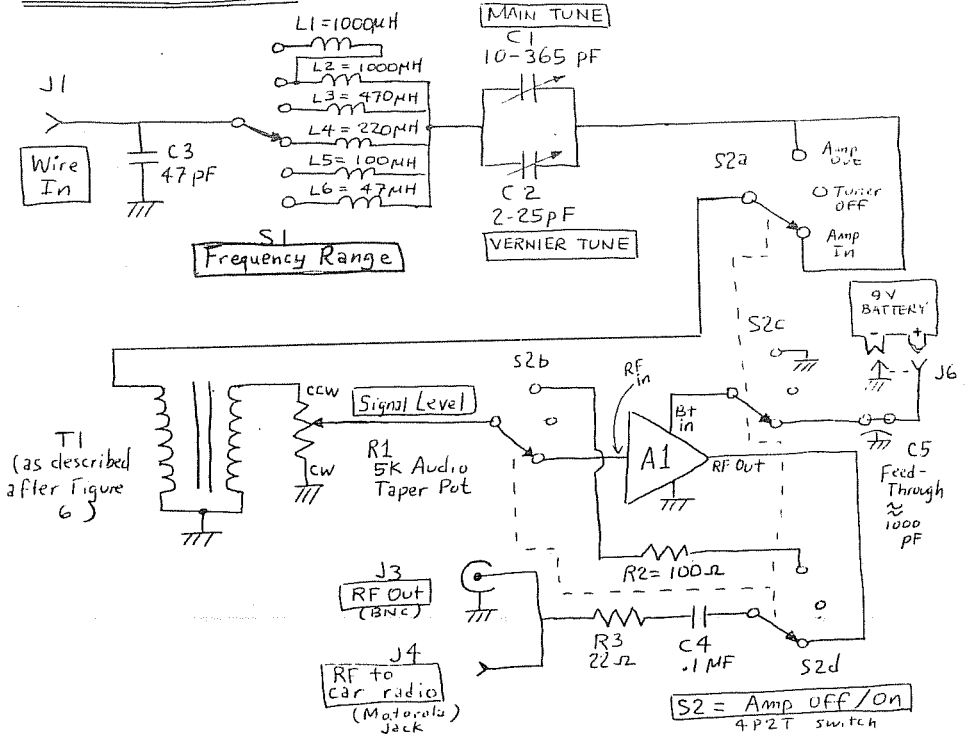 MAIN TUNE
C1
10-365 pF
L1=1000µH
L2=1000µH
L3=470µH
L4=220µH
L5=100µH
L6=47µH
J1
Wire
In
C3
47pF
S1
Frequency Range
C2
2-25pF
VERNIER TUNE
S2a
Amp
Out
Tuner
OFF
Amp
In
9V
BATTERY
- +
J6
S2c
S2b
RF
in
B+
in
A1
RF Out
C5
Feed-
Through
≈
1000
pF
T1
(as described
after Figure
6)
CCW
CW
Signal Level
R1
5K Audio
Taper Pot
R2=100Ω
J3
RF Out
(BNC)
R3
22Ω
C4
.1MF
S2d
J4
RF to
car radio
(Motorola)
jack
S2 = Amp Off/On
4P2T switch